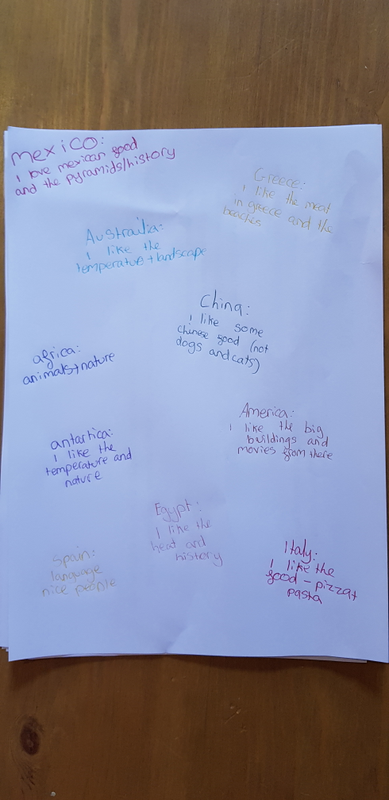 mexico:
I love mexican food
and the pyramids/history
Greece:
I like the meat
in greece and the
beaches
Australia:
I like the
temperature + landscape
China:
I like some
chinese food (not
dogs and cats)
africa:
animals + nature
America:
I like the big
buildings and
movies from there
antartica:
I like the
temperature and
nature
Egypt:
I like the
heat and
history
Spain:
language
nice people
Italy:
I like the
food - pizza +
pasta